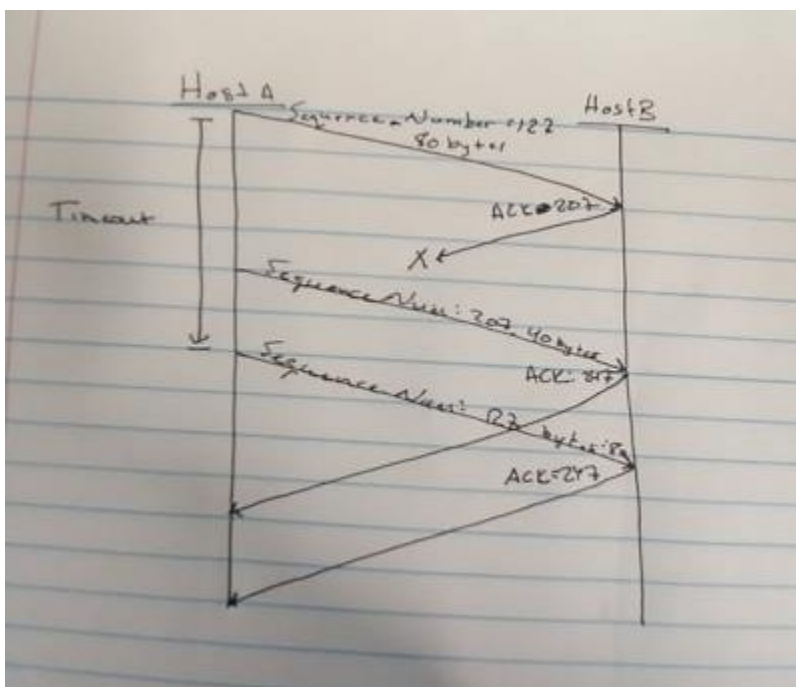 Host A
Host B
Sequence Number = 127
80 bytes
ACK = 207
Timeout
X
Sequence Num: 207, 40 bytes
ACK: 247
Sequence Num: 127 bytes: 80
ACK = 247